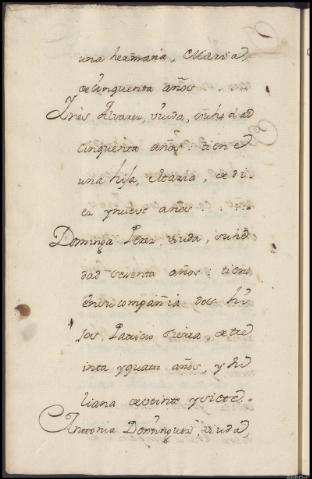 una hermana, Maria,
de cinquenta años . .
Ines Alvarez, viuda, su hedad
cinquenta años : tiene
una hija, Maria, de di
ez y nueve años . . .
Dominga Perez, viuda, su he
dad sesenta años : tiene
en su compañia dos hi
jos, Patricio Perez, de tre
inta y quatro años, y Ju
liana de veinte y siete.
Antonia Dominguez viuda,